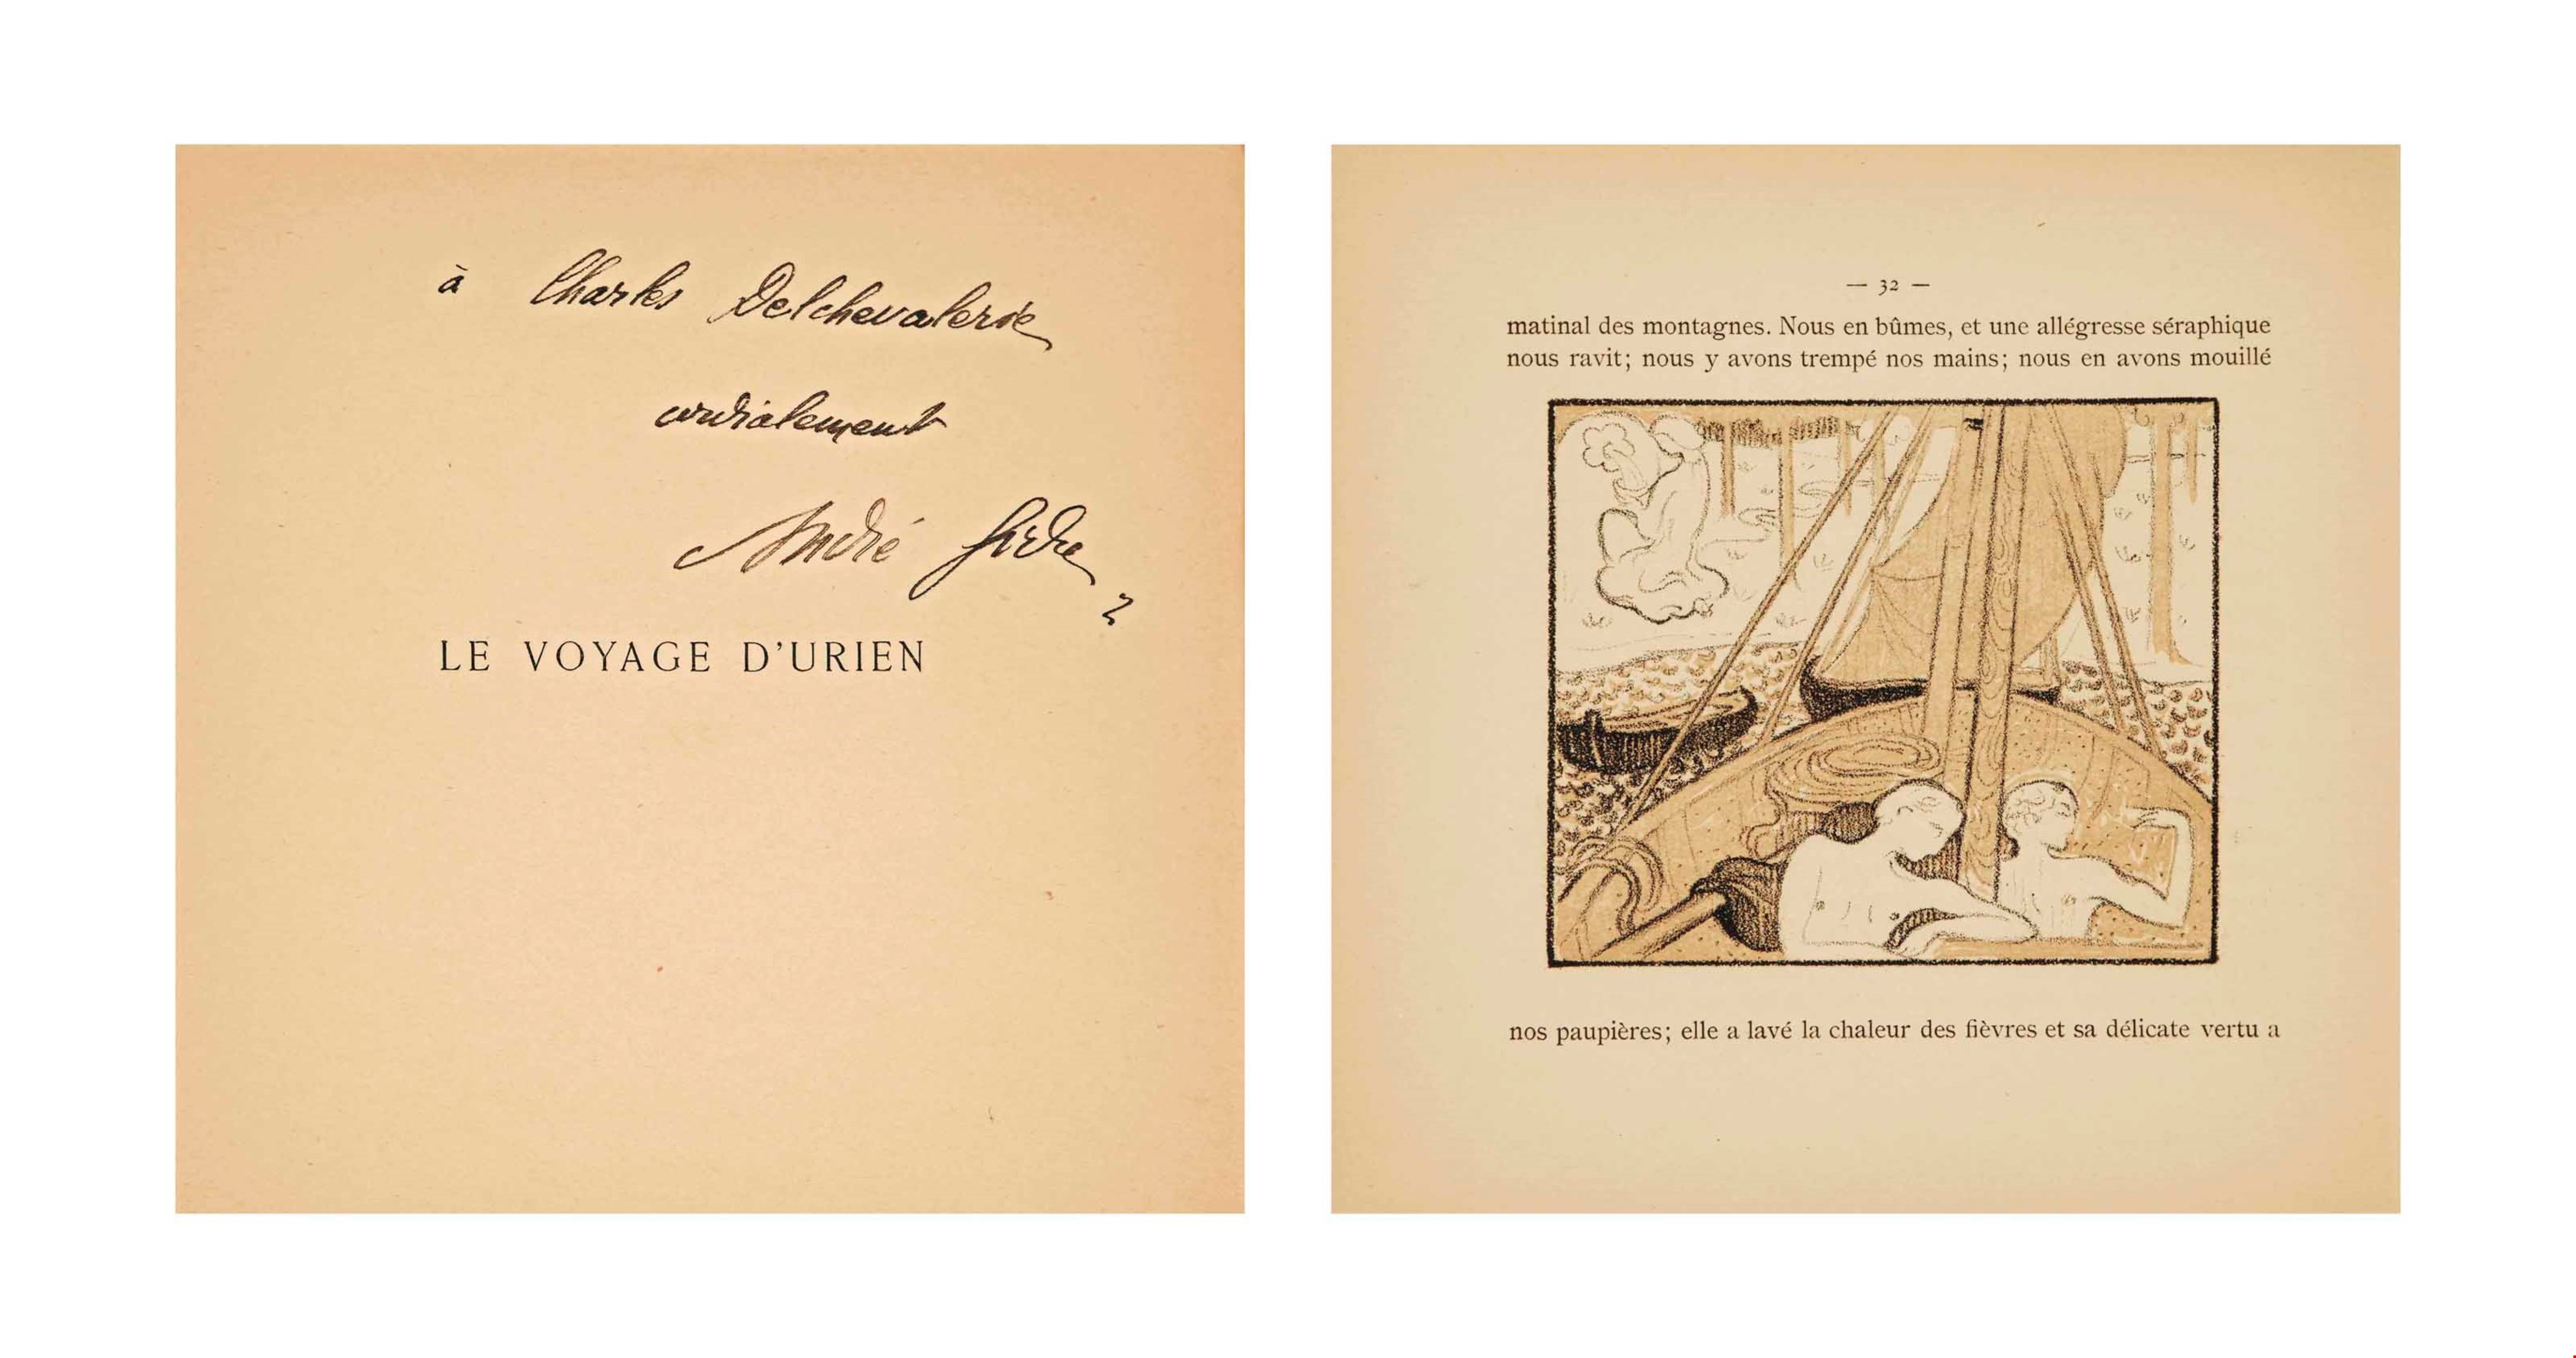 à Charles Delchevalerie
cordialement
André Gide
LE VOYAGE D'URIEN
— 32 —
matinal des montagnes. Nous en bûmes, et une allégresse séraphique
nous ravit; nous y avons trempé nos mains; nous en avons mouillé
nos paupières; elle a lavé la chaleur des fièvres et sa délicate vertu a